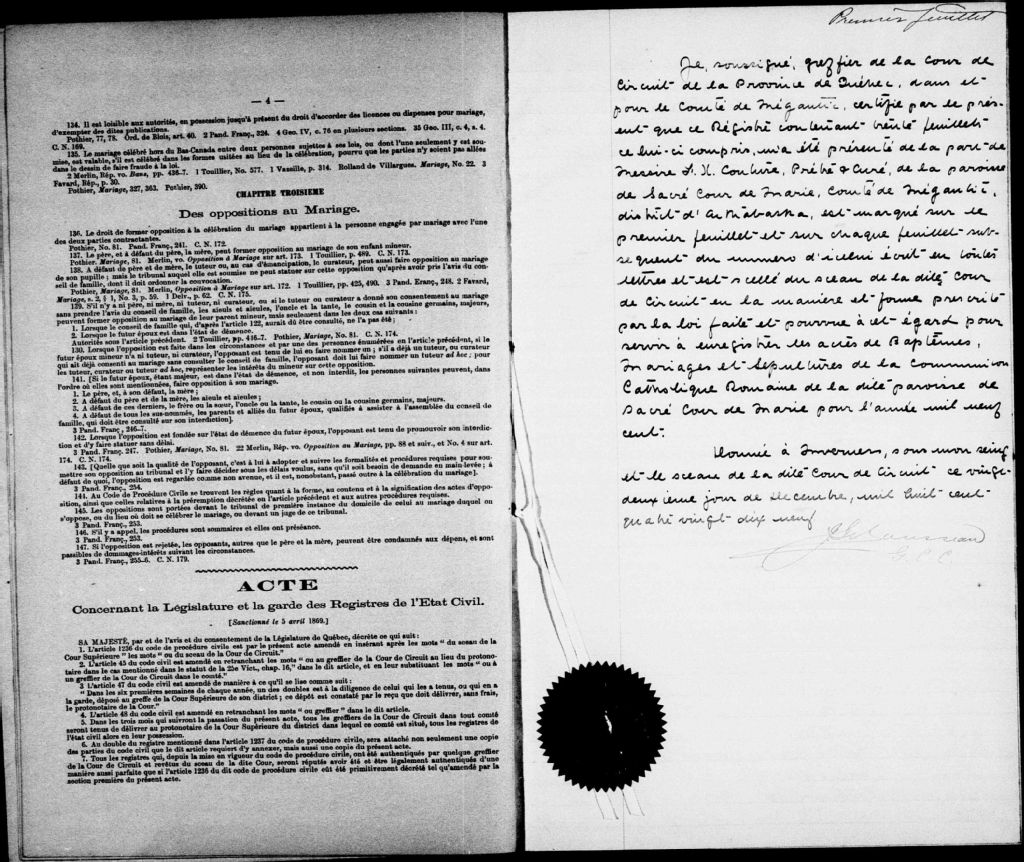 — 4 —
134. Il est loisible aux autorités, en possession jusqu'à présent du droit d'accorder des licences ou dispenses pour mariage,
d'exempter des dites publications.
Pothier, 77, 78. Ord. de Blois, art. 40. 2 Pand. Franç., 324. 4 Geo. IV, c. 76 en plusieurs sections. 35 Geo. III, c. 4, s. 4.
C. N. 169.
135. Le mariage célébré hors du Bas-Canada entre deux personnes sujettes à ses lois, ou dont l'une seulement y est sou-
mise, est valable, s'il est célébré dans les formes usitées au lieu de la célébration, pourvu que les parties n'y soient pas allées
dans le dessin de faire fraude à la loi.
2 Merlin, Rép. vo. Bans, pp. 436-7. 1 Touillier, No. 577. 1 Vazeille, p. 314. Rolland de Villargues. Mariage, No 22. 3
Favard, Rép., p. 30.
Pothier, Mariage, 327, 363. Pothier, 390.
CHAPITRE TROISIEME
Des oppositions au Mariage.
136. Le droit de former opposition à la célébration du mariage appartient à la personne engagée par mariage avec l'une
des deux parties contractantes.
Pothier, No. 81. Pand. Franç., 241. C. N. 172.
137. Le père, et à défaut du père, la mère, peut former opposition au mariage de son enfant mineur.
Pothier. Mariage, 81. Merlin, vo. Opposition à Mariage sur art. 173. 1 Touillier, p. 489. C. N. 173.
138. A défaut de père et de mère, le tuteur ou, au cas d'émancipation, le curateur, peut aussi faire opposition au mariage
de son pupille; mais le tribunal auquel elle est soumise ne peut statuer sur cette opposition qu'après avoir pris l'avis du con-
seil de famille, dont il doit ordonner la convocation.
Pothier, Mariage, 81. Merlin, Opposition à Mariage sur art. 172. 1 Touillier, pp. 425, 490. 3 Pand. Franç., 248. 2 Favard,
Mariage, s. 2, § 1, No. 3, p. 59. 1 Delv., p. 62. C. N. 175.
139. S'il n'y a ni père, ni mère, ni tuteur, ni curateur, ou si le tuteur ou curateur a donné son consentement au mariage
sans prendre l'avis du conseil de famille, les aïeuls et aïeules, l'oncle et la tante, le cousin et la cousine germains, majeurs,
peuvent former opposition au mariage de leur parent mineur, mais seulement dans les deux cas suivants :
1. Lorsque le conseil de famille qui, d'après l'article 122, aurait dû être consulté, ne l'a pas été ;
2. Lorsque le futur époux est dans l'état de démence.
Autorités sous l'article précédent. 2 Touillier, pp. 416-7. Pothier, Mariage, No. 81. C. N. 174.
130. Lorsque l'opposition est faite dans les circonstances et par une des personnes énumérées en l'article précédent, si le
futur époux mineur n'a ni tuteur, ni curateur, l'opposant est tenu de lui en faire nommer un ; s'il a déjà un tuteur, ou curateur
qui ait déjà consenti au mariage sans consulter le conseil de famille, l'opposant doit lui faire nommer un tuteur ad hoc ; pour
les tuteur, curateur ou tuteur ad hoc, représenter les intérêts du mineur sur cette opposition.
141. [Si le futur époux, étant majeur, est dans l'état de démence, et non interdit, les personnes suivantes peuvent, dans
l'ordre où elles sont mentionnées, faire opposition à son mariage.
1. Le père, et, à son défaut, la mère ;
2. A défaut du père et de la mère, les aïeuls et aïeules ;
3. A défaut de ces derniers, le frère ou la sœur, l'oncle ou la tante, le cousin ou la cousine germains, majeurs.
4. A défaut de tous les sus-nommés, les parents et alliés du futur époux, qualifiés à assister à l'assemblée du conseil de
famille, qui doit être consulté sur son interdiction].
3 Pand. Franç., 246-7.
142. Lorsque l'opposition est fondée sur l'état de démence du futur époux, l'opposant est tenu de promouvoir son interdic-
tion et d'y faire statuer sans délai.
3 Pand. Franç. 247. Pothier, Mariage, No. 81. 22 Merlin, Rép. vo. Opposition au Mariage, pp. 88 et suiv., et No. 4 sur art.
174. C. N. 174.
143. [Quelle que soit la qualité de l'opposant, c'est à lui à adopter et suivre les formalités et procédures requises pour sou-
mettre son opposition au tribunal et l'y faire décider sous les délais voulus, sans qu'il soit besoin de demande en main-levée ; à
défaut de quoi, l'opposition est regardée comme non avenue, et il est, nonobstant, passé outre à la célébration du mariage].
3 Pand. Franç., 254.
144. Au Code de Procédure Civile se trouvent les règles quant à la forme, au contenu et à la signification des actes d'oppo-
sition, ainsi que celles relatives à la préremption décrétée en l'article précédent et aux autres procédures requises.
145. Les oppositions sont portées devant le tribunal de première instance du domicile de celui au mariage duquel on
s'oppose, ou du lieu où doit se célébrer le mariage, ou devant un juge de ce tribunal.
3 Pand. Franç., 253.
146. S'il y a appel, les procédures sont sommaires et elles ont préséance.
3 Pand. Franç., 253.
147. Si l'opposition est rejetée, les opposants, autres que le père et la mère, peuvent être condamnés aux dépens, et sont
passibles de dommages-intérêts suivant les circonstances.
3 Pand. Franç., 255-6. C. N. 179.
ACTE
Concernant la Législature et la garde des Registres de l'Etat Civil.
[Sanctionné le 5 avril 1869.]
SA MAJESTÉ, par et de l'avis et du consentement de la Législature de Québec, décrète ce qui suit :
1. L'article 1236 du code de procédure civile est par le présent acte amendé en insérant après les mots " du sceau de la
Cour Supérieure " les mots " ou du sceau de la Cour de Circuit."
2. L'article 45 du code civil est amendé en retranchant les mots " ou au greffier de la Cour de Circuit au lieu du protono-
taire dans le cas mentionné dans le statut de la 25e Vict., chap. 16," dans le dit article, et en leur substituant les mots " ou à
un greffier de la Cour de Circuit dans le comté."
3 L'article 47 du code civil est amendé de manière à ce qu'il se lise comme suit :
" Dans les six premières semaines de chaque année, un des doubles est à la diligence de celui qui les a tenus, ou qui en a
la garde, déposé au greffe de la Cour Supérieure de son district ; ce dépôt est constaté par le reçu que doit délivrer, sans frais,
le protonotaire de la Cour."
4. L'article 48 du code civil est amendé en retranchant les mots " ou greffier " dans le dit article.
5. Dans les trois mois qui suivront la passation du présent acte, tous les greffiers de la Cour de Circuit dans tout comté
seront tenus de délivrer au protonotaire de la Cour Supérieure du district dans lequel ce comté est situé, tous les registres de
l'état civil alors en leur possession.
6. Au double du registre mentionné dans l'article 1237 du code de procédure civile, sera attaché non seulement une copie
des parties du code civil que le dit article requiert d'y annexer, mais aussi une copie du présent acte.
7. Tous les registres qui, depuis la mise en vigueur du code de procédure civile, ont été authentiqués par quelque greffier
de la Cour de Circuit et revêtus du sceau de la dite Cour, seront réputés avoir été et être légalement authentiqués d'une
manière aussi parfaite que si l'article 1236 du dit code de procédure civile eût été primitivement décrété tel qu'amendé par la
section première du présent acte.
Premier feuillet
Je, soussigné, greffier de la Cour de
Circuit de la Province de Québec, dans et
pour le Comté de Mégantic, certifie par le prés-
ent que ce Régistre contenant trente feuillets
celui-ci compris, m'a été présenté de la part de
Messire J. N. Couture, Prêtre & Curé, de la paroisse
de Sacré Cœur de Marie, Comté de Mégantic,
district d'Arthabaska, est marqué sur le
premier feuillet et sur chaque feuillet sub-
séquent du numéro d'icelui écrit en toutes
lettres et est scellé du sceau de la dite Cour
de Circuit en la manière et forme prescrite
par la loi faite et pourvue à cet égard pour
servir à enregistrer les actes de Baptêmes,
Mariages et Sépultures de la Communion
Catholique Romaine de la dite paroisse de
Sacré Cœur de Marie pour l'année mil neuf
cent.
Donnée à Inverness, sous mon seing
et le sceau de la dite Cour de Circuit ce vingt
deuxième jour de Décembre, mil huit cent
quatre vingt dix neuf
G. C. C.